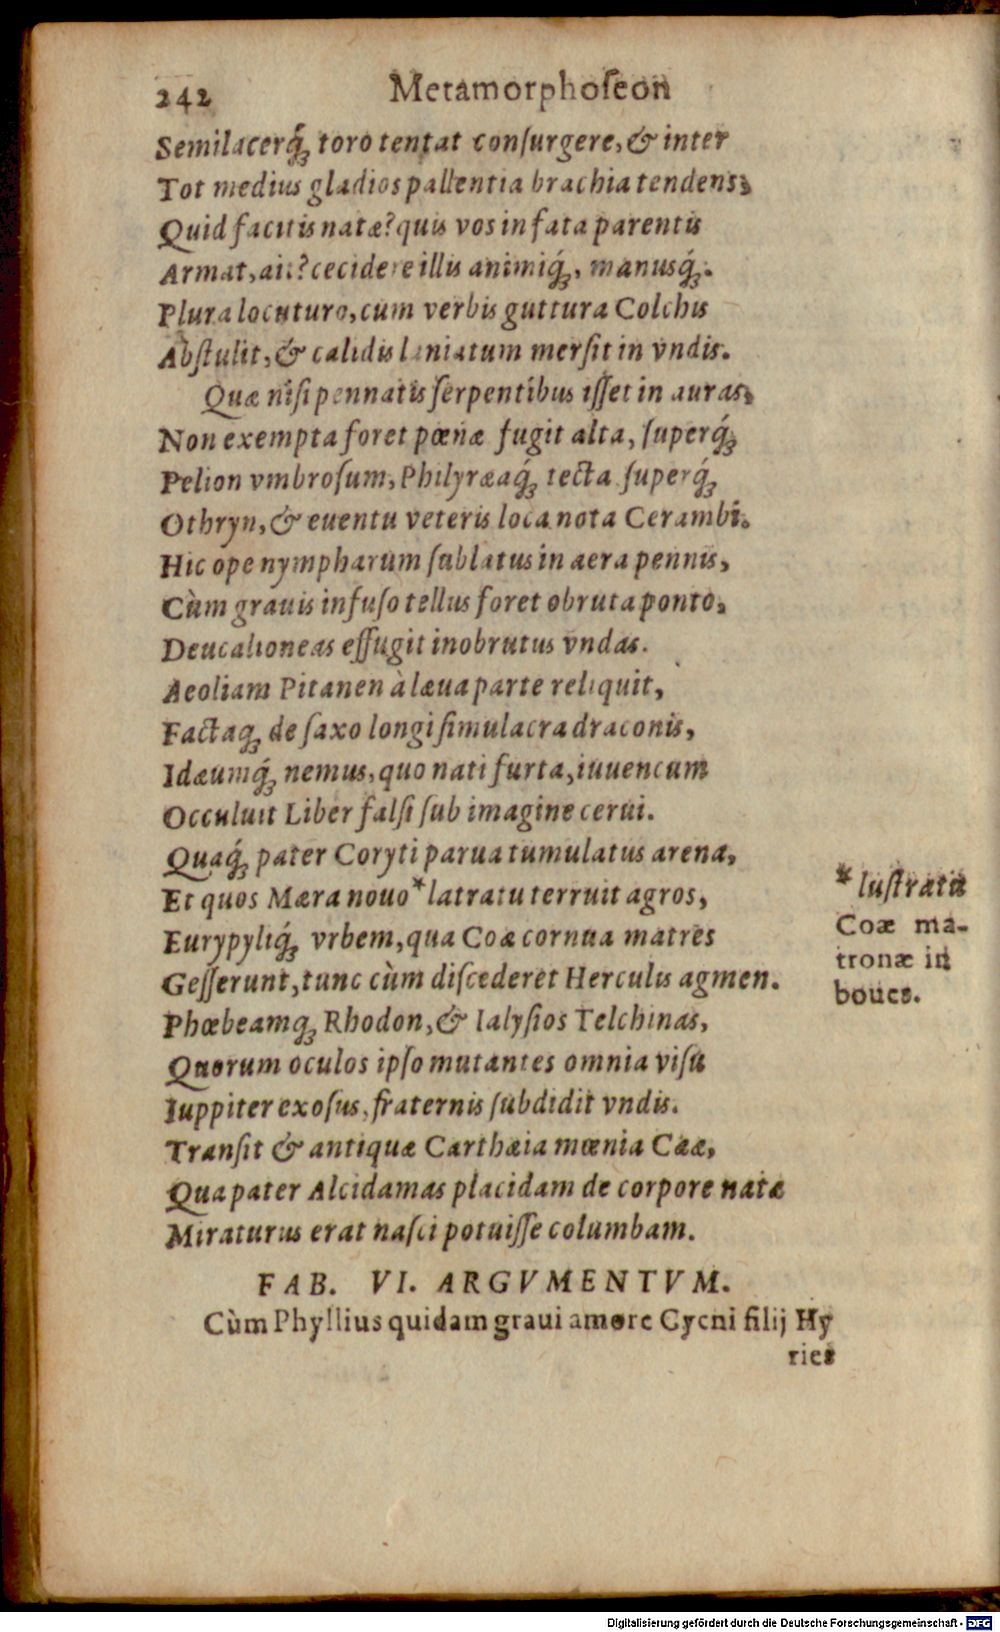 242 Metamorphoſeon
Semilacerq́; toro tentat conſurgere, & inter
Tot medius gladios pallentia brachia tendens;
Quid facitis natæ? quis vos in fata parentis
Armat, ait? cecidere illis animiq́;, manusq́;.
Plura locuturo, cum verbis guttura Colchis
Abſtulit, & calidis laniatum merſit in vndis.
Quæ niſi pennatis ſerpentibus iſſet in auras;
Non exempta foret pœnæ fugit alta, ſuperq́;
Pelion vmbroſum, Philyræaq́; tecta ſuperq́;
Othryn, & euentu veteris loca nota Cerambi.
Hic ope nympharum ſublatus in aera pennis,
Cùm grauis infuſo tellus foret obruta ponto,
Deucalioneas effugit inobrutus vndas.
Aeoliam Pitanen à læua parte reliquit,
Factaq; de ſaxo longi ſimulacra draconis,
Idæumq́; nemus, quo nati furta, iuuencum
Occuluit Liber falſi ſub imagine cerui.
Quaq́; pater Coryti parua tumulatus arena,
Et quos Mæra nouo * latratu terruit agros,
Eurypyliq́; vrbem, qua Coæ cornua matres
Geſſerunt, tunc cùm diſcederet Herculis agmen.
Phœbeamq; Rhodon, & Ialyſios Telchinas,
Quorum oculos ipſo mutantes omnia viſu
Iuppiter exoſus, fraternis ſubdidit vndis.
Tranſit & antiquæ Carthæia mœnia Cææ,
Qua pater Alcidamas placidam de corpore natæ
Miraturus erat naſci potuiſſe columbam.
* luſtratu
Coæ ma-
tronæ in
boues.
FAB. VI. ARGVMENTVM.
Cùm Phyllius quidam graui amore Cycni filij Hy
ries
Digitalisierung gefördert durch die Deutsche Forschungsgemeinschaft - DFG